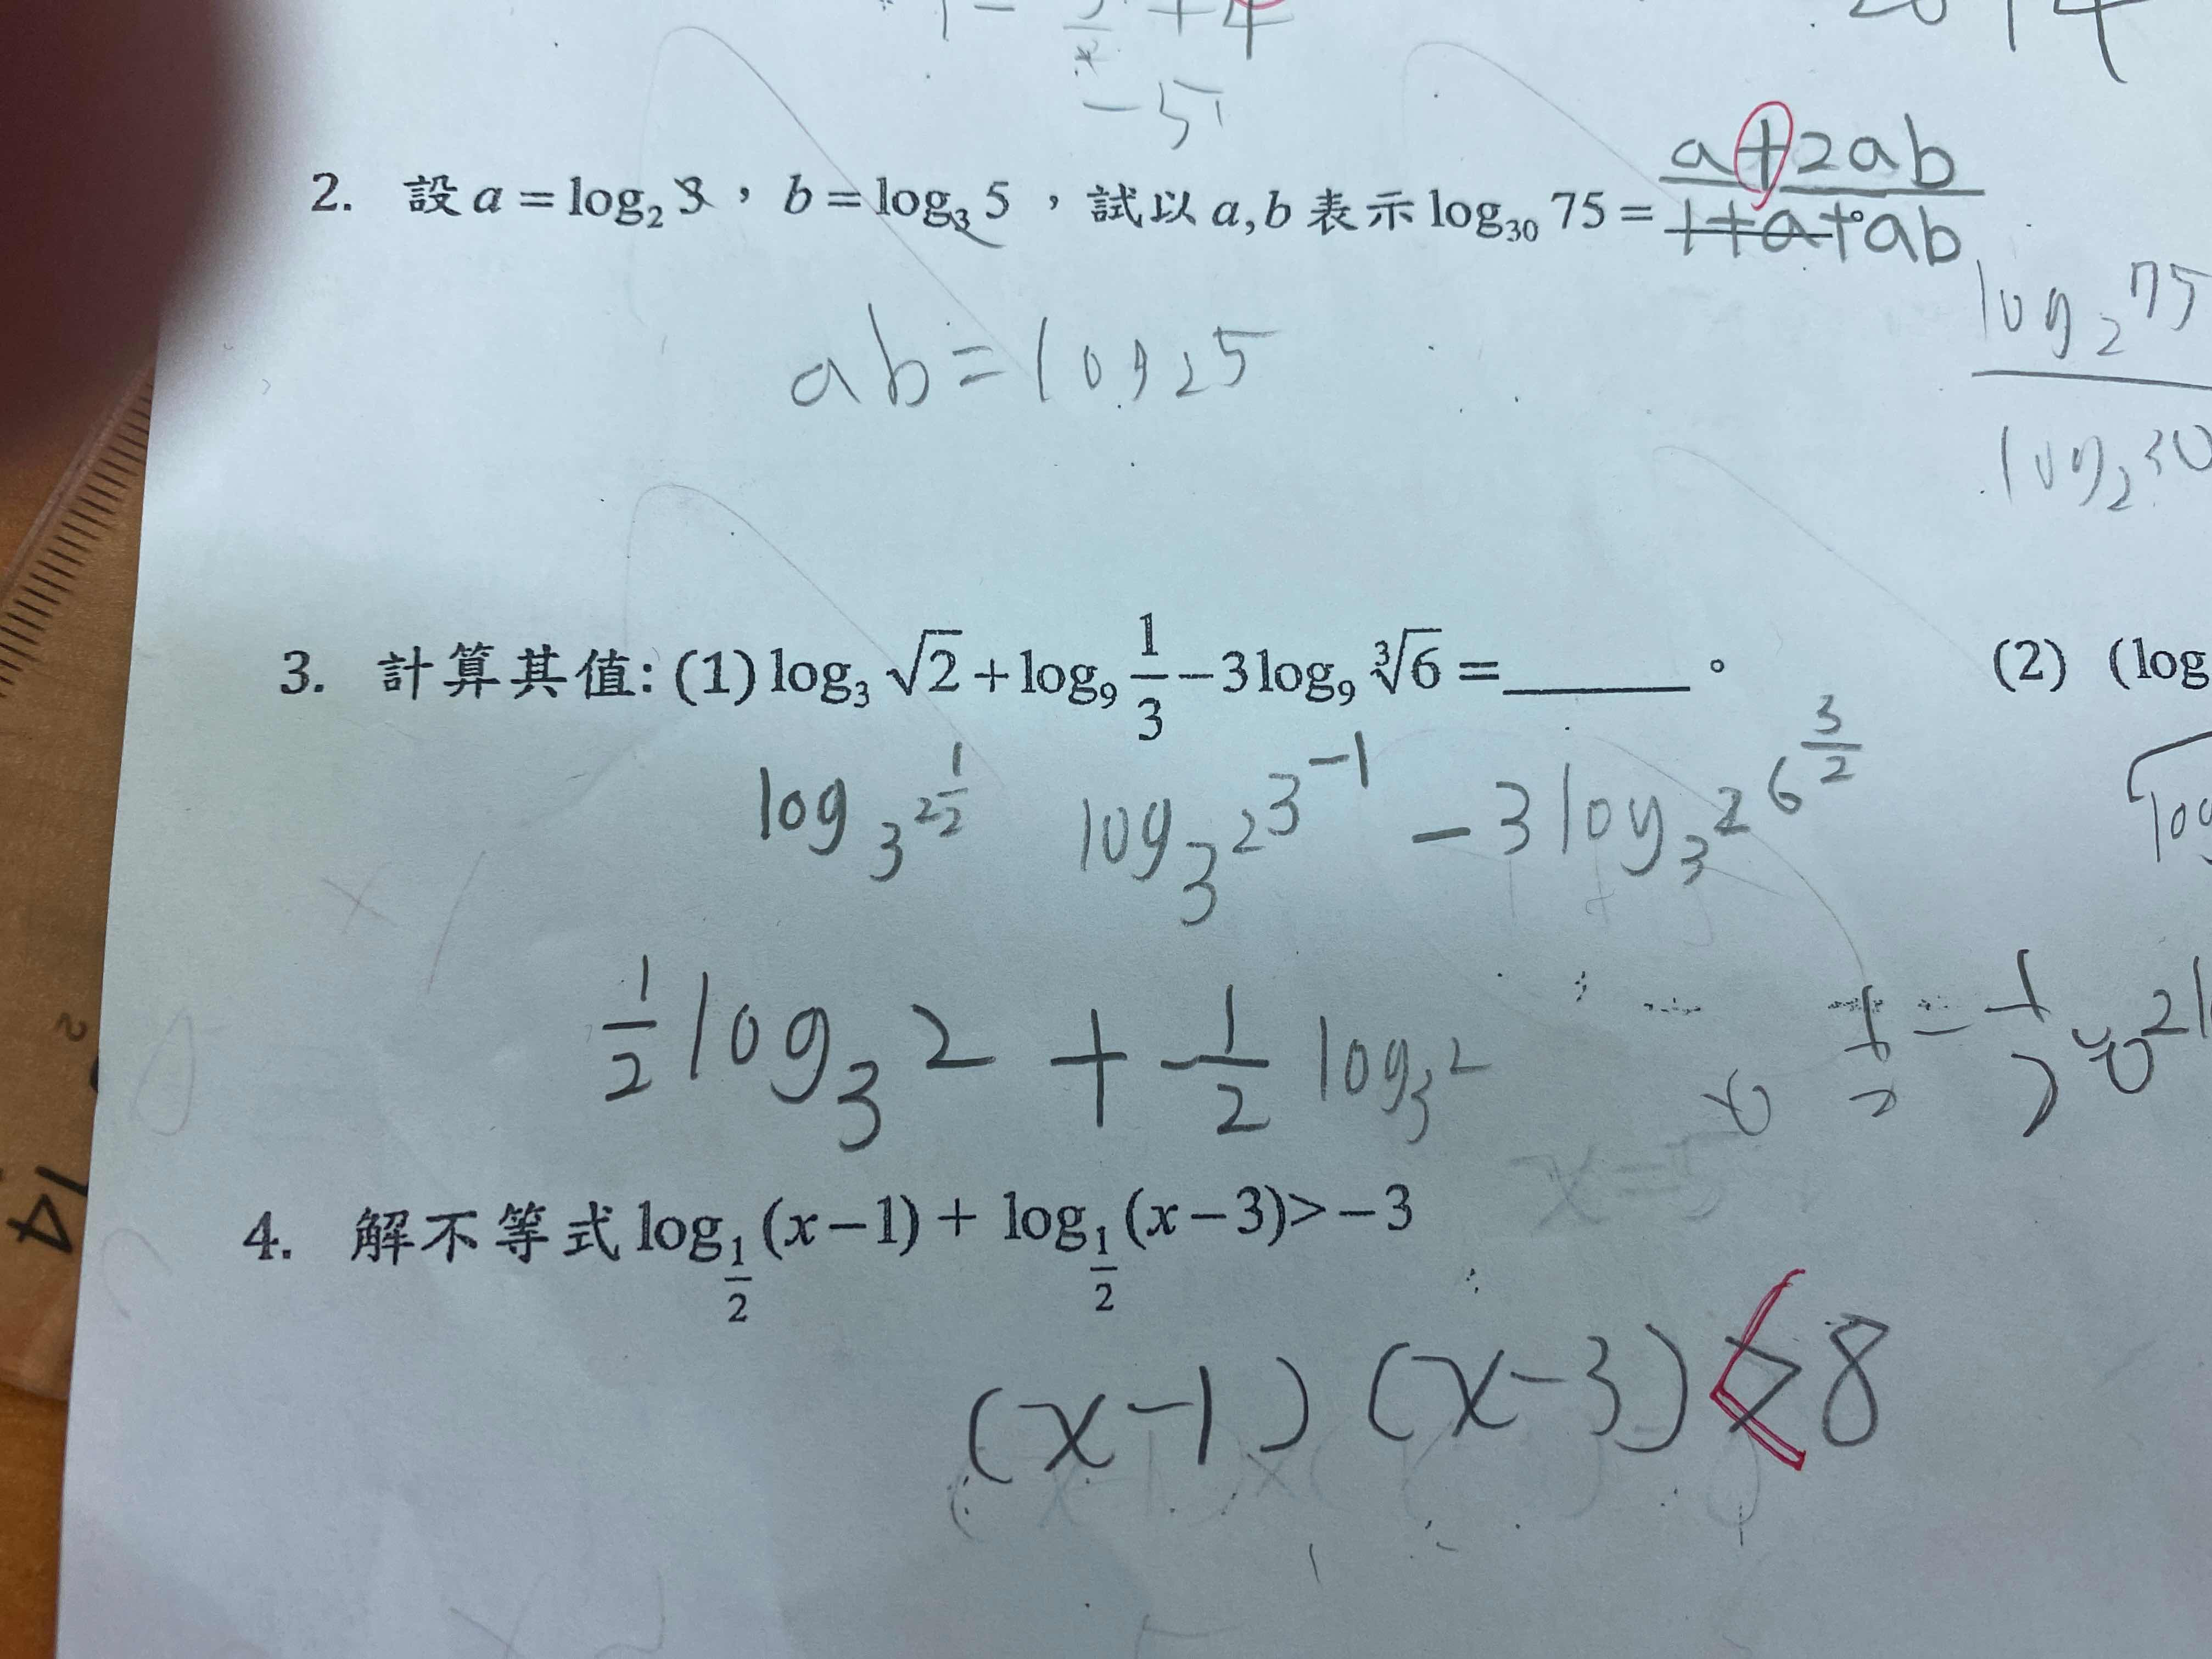 -5
2. 設 a = log₂ 3，b = log₃ 5，試以 a, b 表示 log₃₀ 75 = (a+2ab)/(1+a+ab)。
ab = log₂5
log₂75
log₂30
3. 計算其值: (1) log₃ √2 + log₉ 1/3 − 3 log₉ ∛6 = ______。 (2) (log
log₃ 2^(1/2) log₃² 3^(-1) − 3 log₃² 6^(3/2)
1/2 log₃ 2 + −1/2 log₃ 2
4. 解不等式 log_(1/2) (x−1) + log_(1/2) (x−3) > −3
(x−1)(x−3) < 8